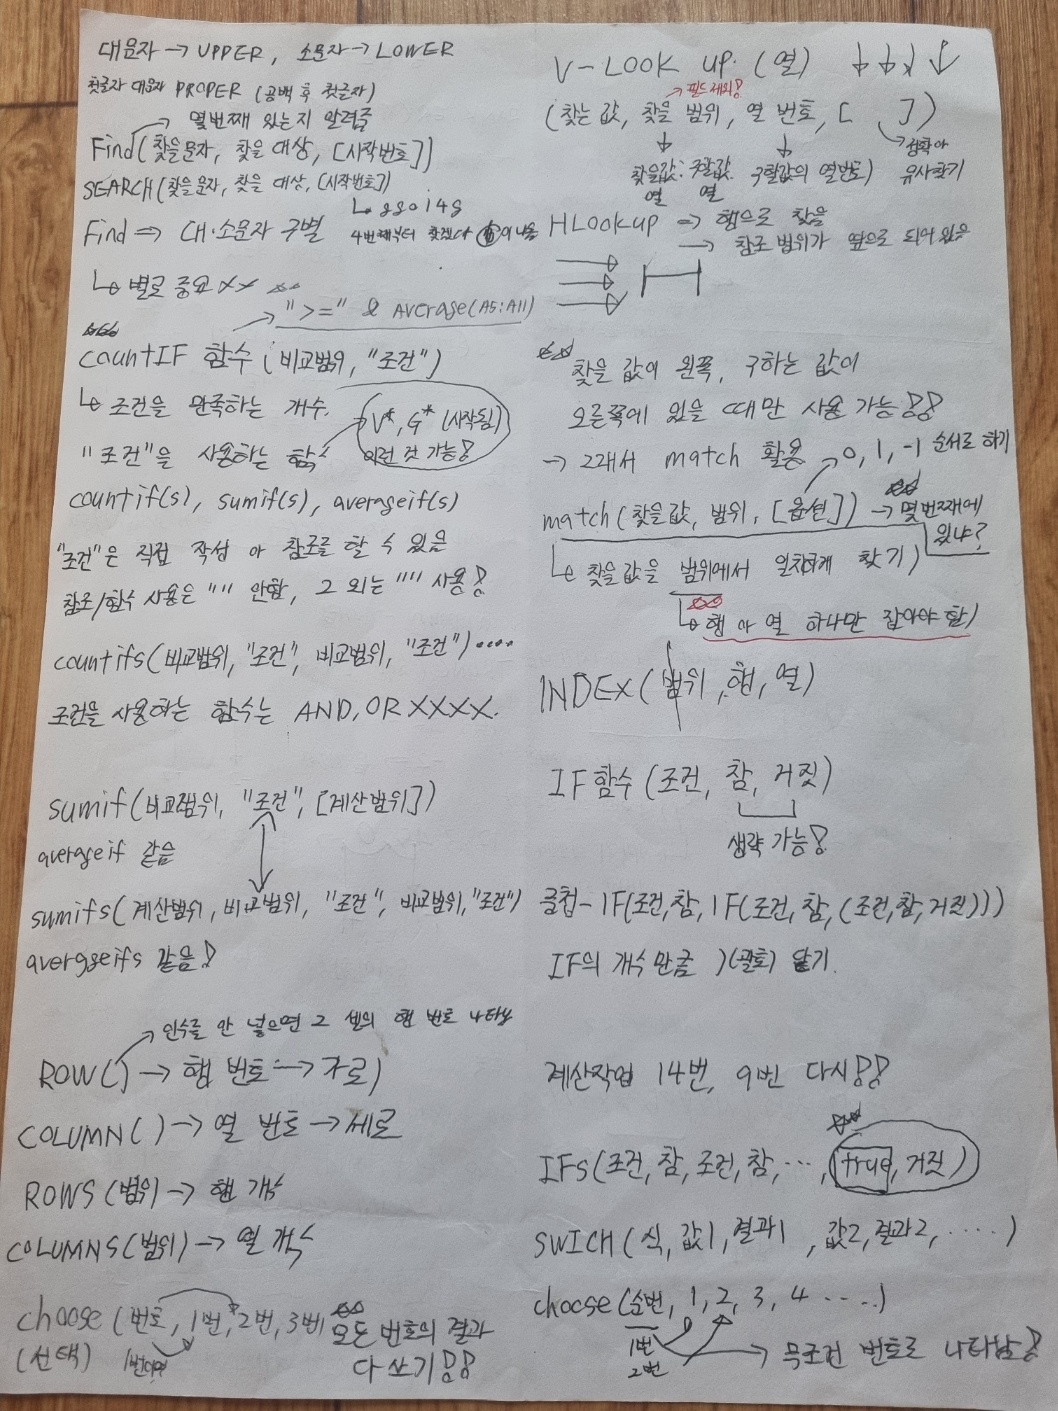 대문자 → UPPER, 소문자 → LOWER
첫글자 대문자 PROPER (공백 후 첫글자)
몇번째 있는지 알려줌
Find(찾을문자, 찾을 대상, [시작번호])
SEARCH(찾을문자, 찾을 대상, [시작번호])
Find ⇒ 대·소문자 구별
4번째부터 찾겠다
별로 중요 XX
">=" & Average(A5:A11)
countIF 함수 (비교범위, "조건")
조건을 만족하는 개수.
V*, G* (시작됨)
이런 것 가능!
"조건"을 사용하는 함수
countif(s), sumif(s), averageif(s)
"조건"은 직접 작성 or 참조를 할 수 있음
참조/함수 사용은 "" 안함, 그 외는 "" 사용!
countifs(비교범위, "조건", 비교범위, "조건")····
조건을 사용하는 함수는 AND, OR XXXX.
sumif(비교범위, "조건", [계산범위])
averageif 같음
sumifs(계산범위, 비교범위, "조건", 비교범위, "조건")
averageifs 같음!
인수를 안 넣으면 그 셀의 행 번호 나타남
ROW() → 행 번호 → 가로)
COLUMN() → 열 번호 → 세로
ROWS (범위) → 행 개수
COLUMNS (범위) → 열 개수
choose (번호, 1번, 2번, 3번) 모든 번호의 결과
(선택) 1번이면 다 쓰기!!
V-LOOK UP. (열)
필드제외!
(찾는 값, 찾을 범위, 열 번호, [ ])
찾을값: 구할값 구할값의 열번호) 유사찾기
열 열
HLOOKUP → 행으로 찾음
→ 참조 범위가 옆으로 되어 있음
찾을 값이 왼쪽, 구하는 값이
오른쪽에 있을 때만 사용 가능!!
→ 그래서 match 활용 0, 1, -1 순서로 하기
match (찾을값, 범위, [옵션]) → 몇 번째에
있냐?
찾을 값을 범위에서 일치하게 찾기)
행 or 열 하나만 잡아야 함)
INDEX (범위, 행, 열)
IF 함수 (조건, 참, 거짓)
생략 가능!
중첩- IF(조건,참, IF(조건, 참, (조건,참,거짓)))
IF의 개수 만큼 )(괄호) 닫기.
계산작업 14번, 9번 다시!!
IFS (조건, 참, 조건, 참, ···, true, 거짓)
SWICH ( 식, 값1, 결과1 , 값2, 결과2, ····)
choose (순번, 1, 2, 3, 4 ····)
1번
2번
→ 무조건 번호로 나타남!